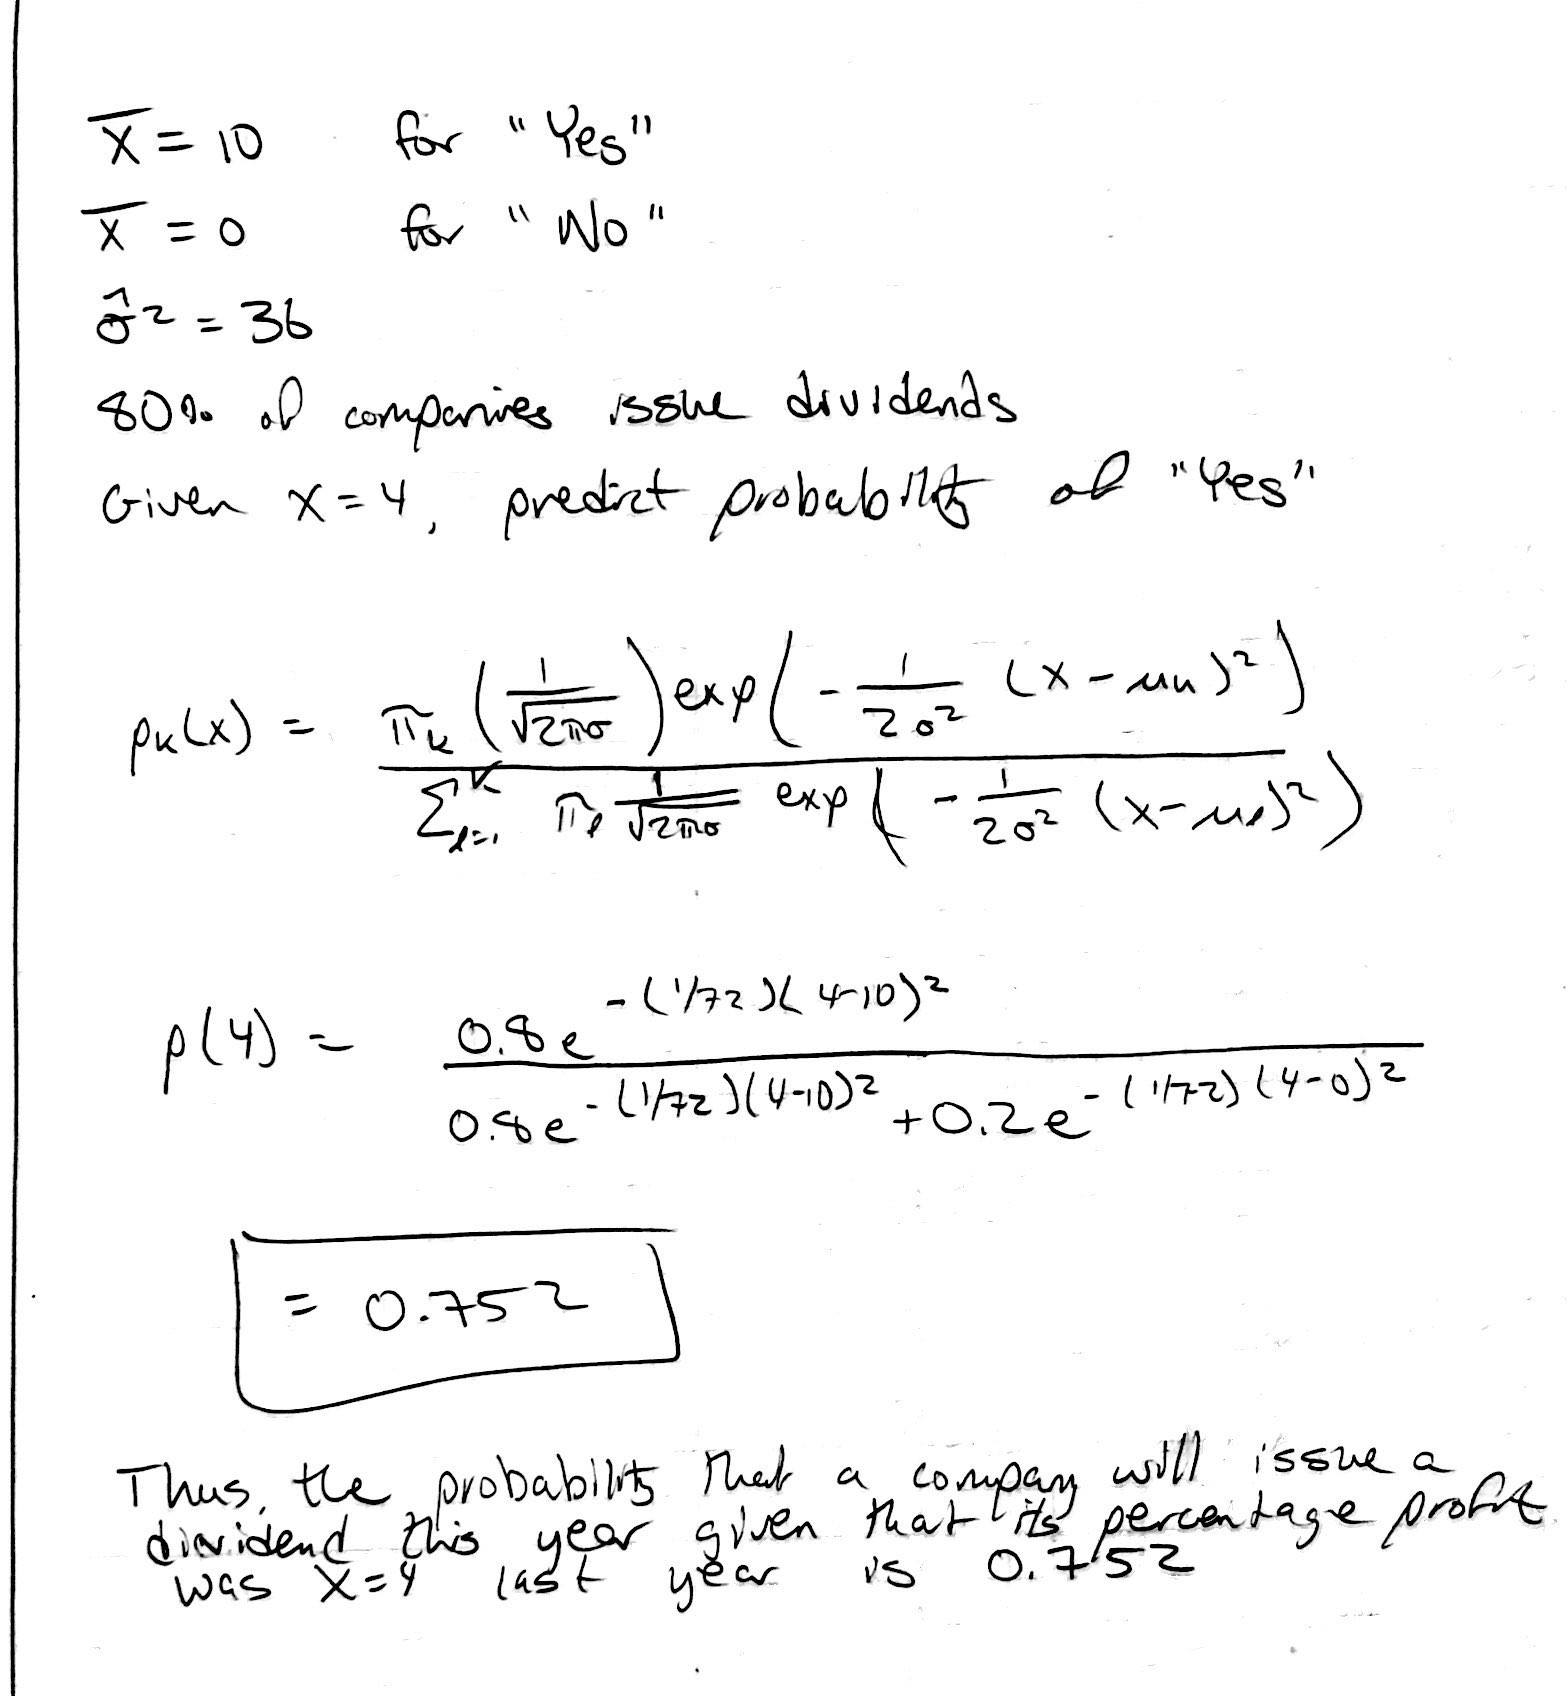 x̄ = 10 for "Yes"
x̄ = 0 for "No"
σ̂² = 36
80% of companies issue dividends
Given x=4, predict probability of "Yes"
pₖ(x) = πₖ (1/√2πσ) exp(-1/2σ² (x-μₖ)²) / Σₗ₌₁ᴷ πₗ 1/√2πσ exp(-1/2σ² (x-μₗ)²)
p(4) = 0.8e^-(1/72)(4-10)² / 0.8e^-(1/72)(4-10)² + 0.2e^-(1/72)(4-0)²
= 0.752
Thus, the probability that a company will issue a
dividend this year given that its percentage profit
was x=4 last year is 0.752